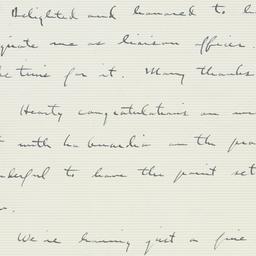 Delighted and honored to h
gnate me as liaison officer.
time for it. Many thanks
Hearty congratulations on
with LaGuardia on the pro
nderful to have the point set
We're having just a fine